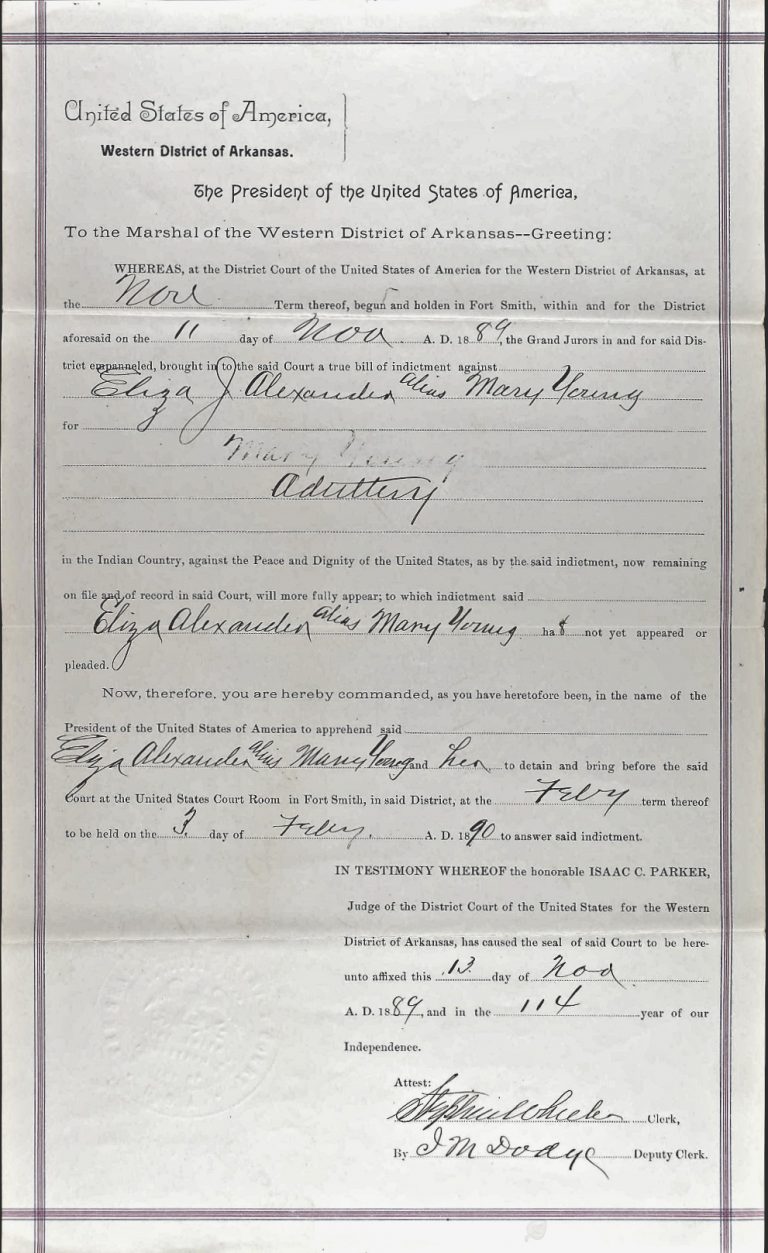 United States of America,
Western District of Arkansas.
The President of the United States of America,
To the Marshal of the Western District of Arkansas--Greeting:
WHEREAS, at the District Court of the United States of America for the Western District of Arkansas, at
the Nov Term thereof, begun and holden in Fort Smith, within and for the District
aforesaid on the 11 day of Nov. A. D. 1889, the Grand Jurors in and for said Dis-
trict empanneled, brought in to the said Court a true bill of indictment against
Eliza J Alexander alias Mary Young
for
Mary Young
Adultery
in the Indian Country, against the Peace and Dignity of the United States, as by the said indictment, now remaining
on file and of record in said Court, will more fully appear; to which indictment said
Eliza Alexander alias Mary Young has not yet appeared or
pleaded.
Now, therefore, you are hereby commanded, as you have heretofore been, in the name of the
President of the United States of America to apprehend said
Eliza Alexander alias Mary Young and her to detain and bring before the said
Court at the United States Court Room in Fort Smith, in said District, at the Feby term thereof
to be held on the 3. day of Feby. A. D. 1890 to answer said indictment.
IN TESTIMONY WHEREOF the honorable ISAAC C. PARKER,
Judge of the District Court of the United States for the Western
District of Arkansas, has caused the seal of said Court to be here-
unto affixed this 13. day of Nov
A. D. 1889, and in the 114 year of our
Independence.
Attest:
Stephen Wheeler Clerk,
By I M Dodge Deputy Clerk.